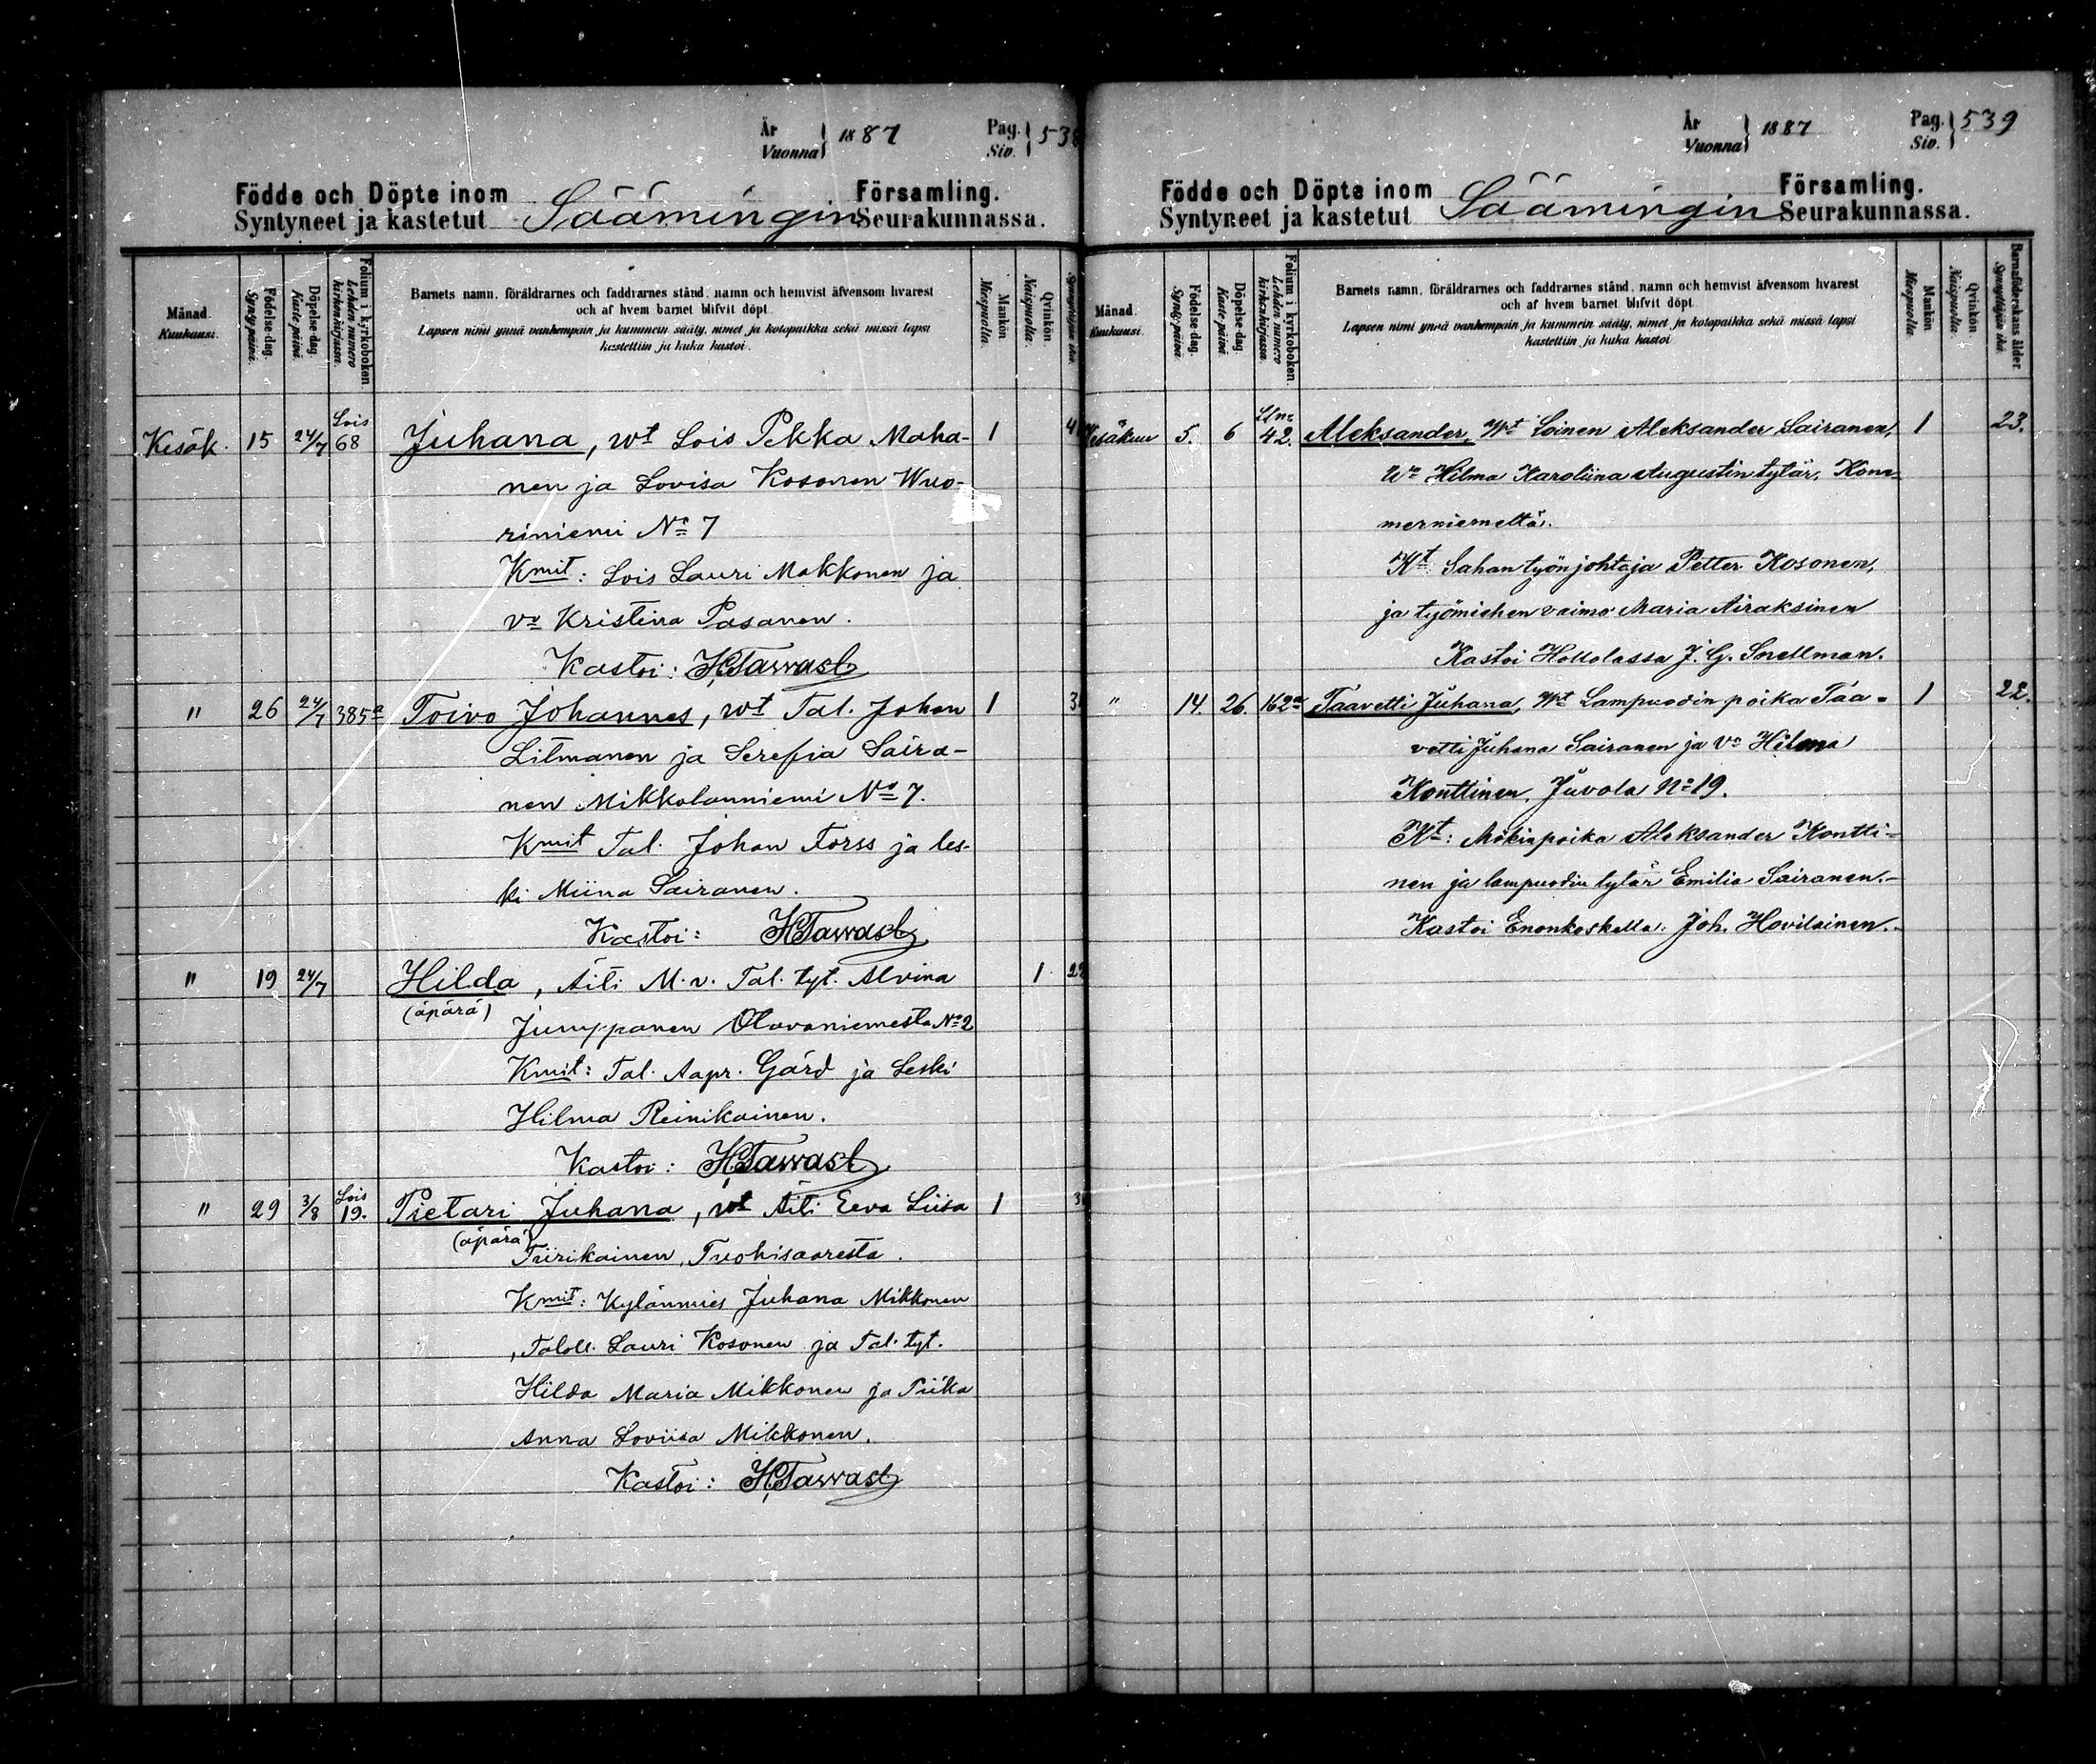 År
Vuonna } 1887
Pag.
Siv. } 538
Födde och Döpte inom Församling.
Syntyneet ja kastetut Säämingin Seurakunnassa.
Månad.
Kuukausi.
Födelse-dag.
Synty-päivä.
Döpelse-dag.
Kaste-päivä.
Folium i kyrkoboken.
Lehden numero kirkonkirjassa.
Barnets namn, föräldrarnes och faddrarnes stånd, namn och hemvist äfvensom hvarest
och af hvem barnet blifvit döpt.
Lapsen nimi ynnä vanhempain ja kummein sääty, nimet ja kotopaikka sekä missä lapsi
kastettiin ja kuka kastoi.
Mankön
Miespuolia.
Qvinkön
Naispuolia.
Lois
Kesäk. 15 24/7 68 Juhana, wt Lois Pekka Maha- 1
nen ja Lovisa Kosonen Wuo-
riniemi No 7
Kmit: Lois Lauri Makkonen ja
vo Kristina Pasanen.
Kastoi: HTawast
" 26 24/7 385a Toivo Johannes, wt Tal. Johan 1
Litmanen ja Serefia Saira-
nen Mikkolanniemi No 7.
Kmit Tal. Johan Forss ja les-
ki Miina Sairanen.
Kastoi: HTawast
" 19 24/7 Hilda, Äiti M.v. Tal. tyt. Alvina 1 22
(äpärä)
Jumppanen Olavaniemestä No 2
Kmit: Tal. Aapr. Gård ja Leski
Hilma Reinikainen.
Kastoi: HTawast
Lois
" 29 3/8 19. Pietari Juhana, wt Äiti Eeva Liisa 1
(äpärä)
Tiirikainen, Tuohisaaresta.
Kmit: Kylänmies Juhana Mikkonen
, Taloll. Lauri Kosonen ja Tal. tyt.
Hilda Maria Mikkonen ja Piika
Anna Loviisa Mikkonen.
Kastoi: HTawast
År
Vuonna } 1887
Pag.
Siv. } 539
Födde och Döpte inom Församling.
Syntyneet ja kastetut Säämingin Seurakunnassa.
Månad.
Kuukausi.
Födelse-dag.
Synty-päivä.
Döpelse-dag.
Kaste-päivä.
Folium i kyrkoboken.
Lehden numero kirkonkirjassa.
Barnets namn, föräldrarnes och faddrarnes stånd, namn och hemvist äfvensom hvarest
och af hvem barnet blifvit döpt.
Lapsen nimi ynnä vanhempain ja kummein sääty, nimet ja kotopaikka sekä missä lapsi
kastettiin ja kuka kastoi
Mankön
Miespuolia.
Qvinkön
Naispuolia.
Barnaföderskans ålder
Synnyttäjän ikä.
Kesäkuu 5. 6 42. Aleksander, Wt Loinen Aleksander Sairanen, 1 23.
Wo Hilma Karoliina Augustin tytär, Kom-
merniemeltä.
Kt Sahan työnjohtaja Petter Kosonen,
ja työmiehen vaimo Maria Airaksinen
Kastoi Hollolassa J. G. Snellman.
" 14. 26. 162a Taavetti Juhana, Wt Lampuodin poika Taa- 1 22.
vetti Juhana Sairanen ja Vo Helena
Konttinen, Juvola No 19.
Kt: Mökinpoika Aleksander Kontti-
nen ja lampuodin tytär Emilia Sairanen.-
Kastoi Enonkoskella: Joh. Hovilainen.